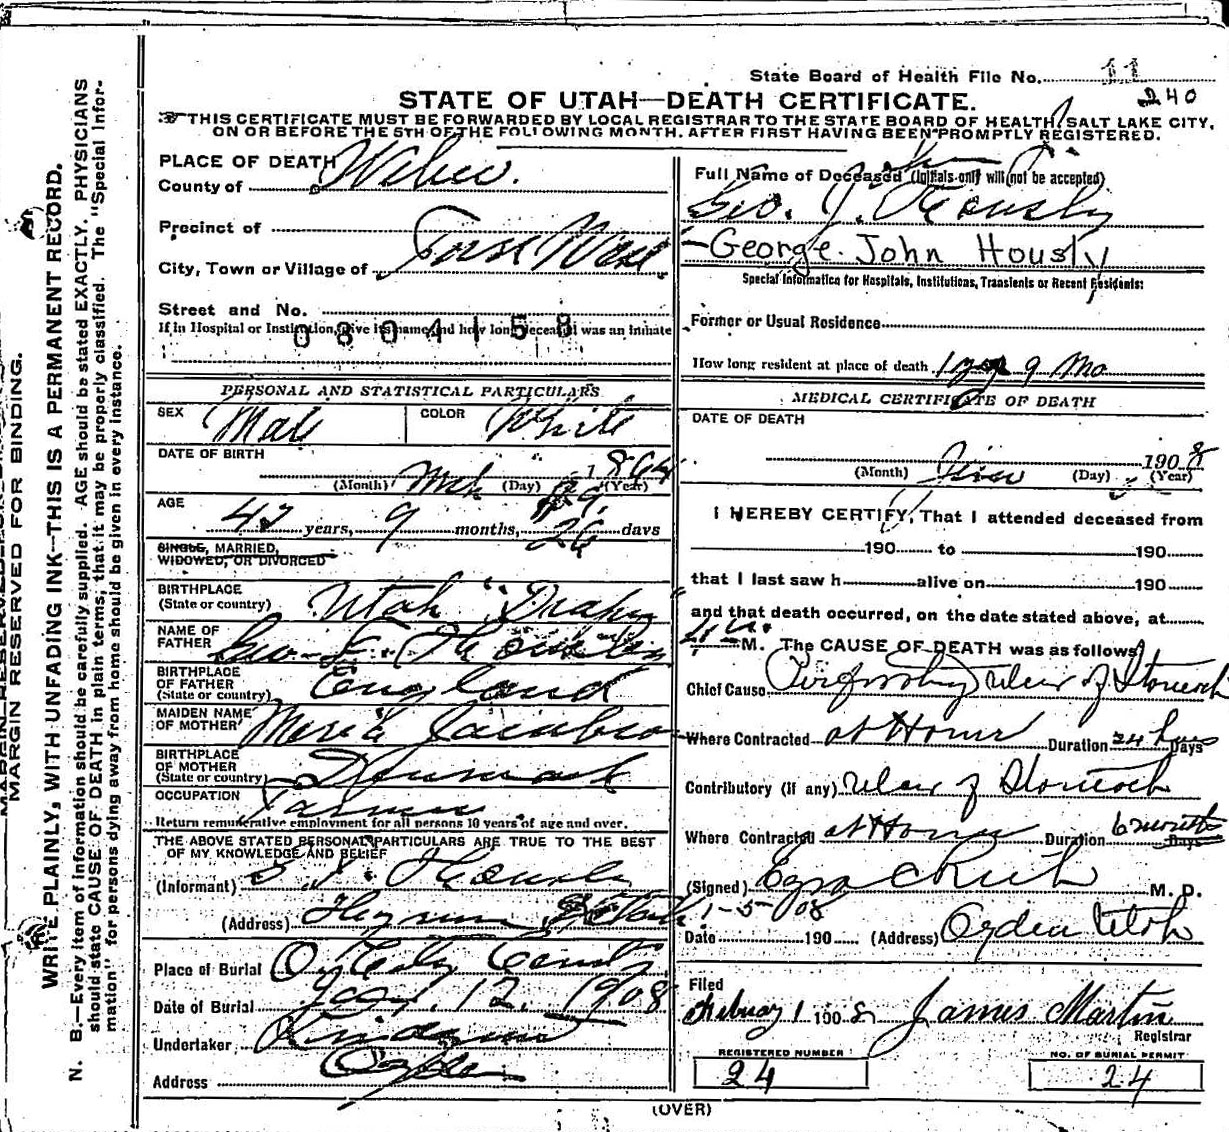 State Board of Health File No. 11
240
STATE OF UTAH—DEATH CERTIFICATE.
THIS CERTIFICATE MUST BE FORWARDED BY LOCAL REGISTRAR TO THE STATE BOARD OF HEALTH, SALT LAKE CITY,
ON OR BEFORE THE 5TH OF THE FOLLOWING MONTH. AFTER FIRST HAVING BEEN PROMPTLY REGISTERED.
MARGIN RESERVED FOR BINDING.
WRITE PLAINLY, WITH UNFADING INK—THIS IS A PERMANENT RECORD.
N. B.—Every item of information should be carefully supplied. AGE should be stated EXACTLY. PHYSICIANS
should state CAUSE OF DEATH in plain terms, that it may be properly classified. The "Special Infor-
mation" for persons dying away from home should be given in every instance.
PLACE OF DEATH
County of Weber.
Precinct of
City, Town or Village of
Street and No.
If in Hospital or Institution, give its name and how long deceased was an inmate
0804158
PERSONAL AND STATISTICAL PARTICULARS
SEX Male COLOR White
DATE OF BIRTH
(Month) Mch (Day) (Year) 1864
AGE
43 years, 9 months, 26 days
SINGLE, MARRIED,
WIDOWED, OR DIVORCED
BIRTHPLACE
(State or country) Utah "Draper"
NAME OF
FATHER Geo. F. Housley
BIRTHPLACE
OF FATHER England
(State or country)
MAIDEN NAME
OF MOTHER Jacobson
BIRTHPLACE
OF MOTHER Denmark
(State or country)
OCCUPATION Farmer
Return remunerative employment for all persons 10 years of age and over.
THE ABOVE STATED PERSONAL PARTICULARS ARE TRUE TO THE BEST
OF MY KNOWLEDGE AND BELIEF
(Informant) Housley
(Address) Hyrum Utah
Place of Burial Ogden City Cemty
Date of Burial Jan. 12. 1908
Undertaker
Address Ogden
Full Name of Deceased (Initials only will not be accepted)
Geo. J. Housley
George John Hously
Special Information for Hospitals, Institutions, Transients or Recent Residents:
Former or Usual Residence
How long resident at place of death 1 yr 9 Mo
MEDICAL CERTIFICATE OF DEATH
DATE OF DEATH
(Month) (Day) 1908 (Year)
I HEREBY CERTIFY, That I attended deceased from
190 to 190
that I last saw h alive on 190
and that death occurred, on the date stated above, at
M. The CAUSE OF DEATH was as follows:
Chief Cause Perforating ulcer of Stomach
Where Contracted at Home Duration 24 hours Days
Contributory (if any) Ulcer of Stomach
Where Contracted at Home Duration 6 months Days
(Signed) Ezra C Rich M. D.
1-5-08
Date 190 (Address) Ogden Utah
Filed
February 1 1908 James Martin
Registrar
REGISTERED NUMBER
24
NO. OF BURIAL PERMIT
24
(OVER)